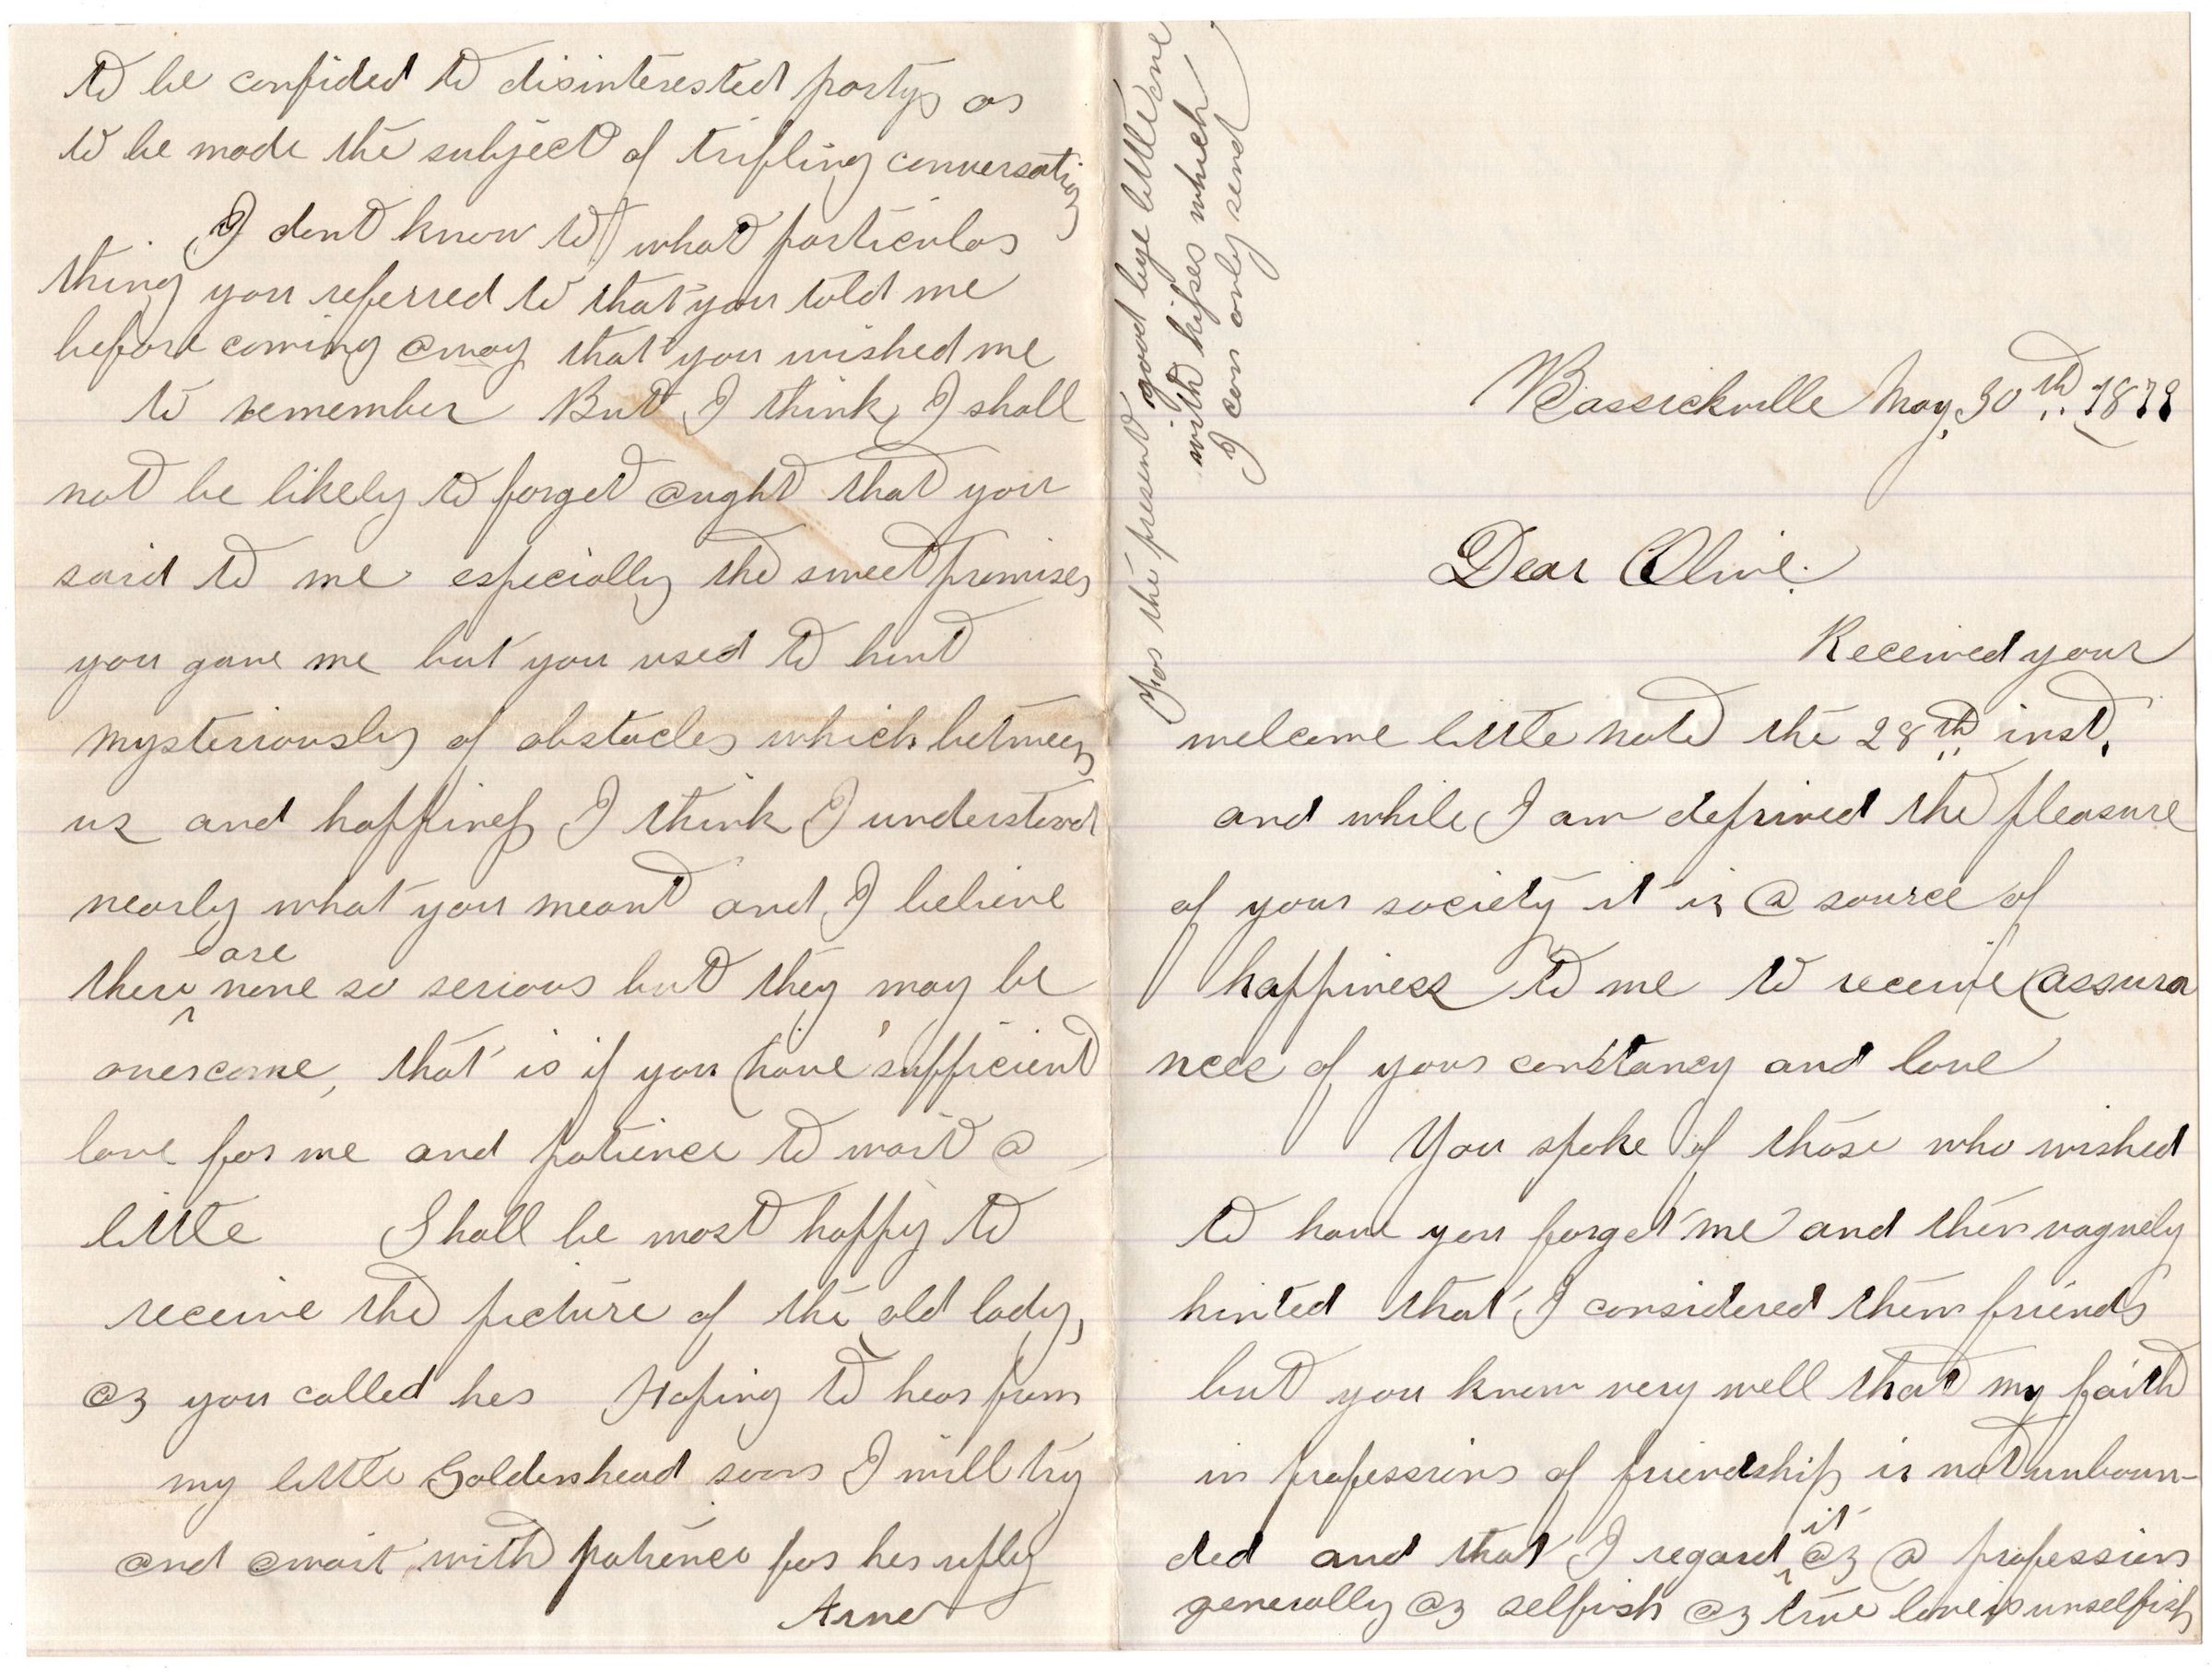 Bassickville May, 30th.. 1878
Dear Olive.
Received your
welcome little note the 28th inst.
and while I am deprived the pleasure
of your society it is a source of
happiness to me to receive assura
nces of your constancy and love
You spoke of those who wished
to have you forget me and then vaguely
hinted that I considered them friends
but you know very well that my faith
in professions of friendship is not unboun-
ded and that I regard it as a profession
generally as selfish as true love is unselfish
to be confided to disinterested partys or
to be made the subject of trifling conversation
I dont know to what particular
thing you referred to that you told me
before coming away that you wished me
to remember But I think I shall
not be likely to forget aught that you
said to me especially the sweet promises
you gave me but you used to hint
mysteriously of obstacles which between
us and happiness I think I understood
nearly what you meant and I believe
there are none so serious but they may be
overcome, that is if you have sufficient
love for me and patience to wait a
little Shall be most happy to
receive the picture of the old lady,
as you called her Hoping to hear from
my little Goldenhead soon I will try
and await with patience for her reply
Arne
For the present good bye little one
with kisses which
I can only send